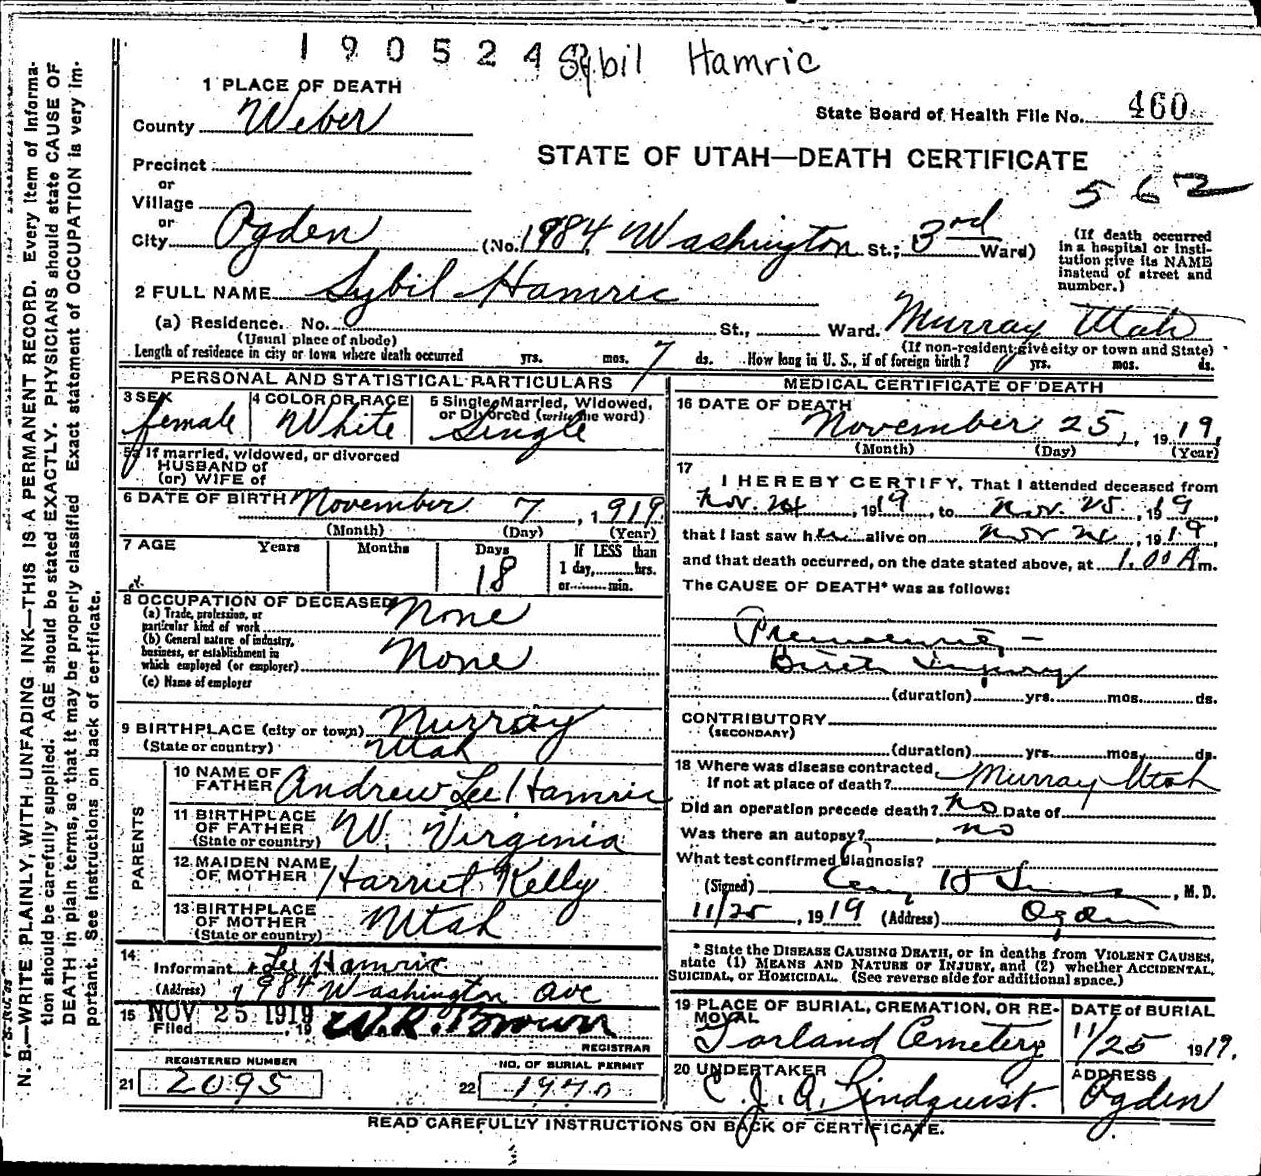 190524 Sybil Hamric
1 PLACE OF DEATH
County Weber
State Board of Health File No. 460
STATE OF UTAH—DEATH CERTIFICATE
562
Precinct
or
Village
or
City Ogden (No. 1984 Washington St.; 3rd Ward)
(If death occurred in a hospital or institution give its NAME instead of street and number.)
2 FULL NAME Sybil Hamric
(a) Residence. No. St., Ward. Murray Utah
(Usual place of abode) (If non-resident give city or town and State)
Length of residence in city or town where death occurred yrs. mos. 7 ds. How long in U. S., if of foreign birth? yrs. mos. ds.
PERSONAL AND STATISTICAL PARTICULARS
3 SEX female
4 COLOR OR RACE White
5 Single, Married, Widowed, or Divorced (write the word) Single
5a If married, widowed, or divorced
HUSBAND of
(or) WIFE of
6 DATE OF BIRTH November 7, 1919
(Month) (Day) (Year)
7 AGE Years Months Days 18 If LESS than 1 day, hrs. or min.
8 OCCUPATION OF DECEASED
(a) Trade, profession, or particular kind of work None
(b) General nature of industry, business, or establishment in which employed (or employer) None
(c) Name of employer
9 BIRTHPLACE (city or town) Murray
(State or country) Utah
PARENTS
10 NAME OF FATHER Andrew Lee Hamric
11 BIRTHPLACE OF FATHER (State or country) W. Virginia
12 MAIDEN NAME OF MOTHER Harriet Kelly
13 BIRTHPLACE OF MOTHER (State or country) Utah
14 Informant Lee Hamric
(Address) 1984 Washington ave
15 Filed NOV 25 1919, 19 W. R. Brown
REGISTRAR
REGISTERED NUMBER
21 2095
NO. OF BURIAL PERMIT
22 1970
MEDICAL CERTIFICATE OF DEATH
16 DATE OF DEATH
November 25, 1919,
(Month) (Day) (Year)
17 I HEREBY CERTIFY, That I attended deceased from
Nov. 24, 1919, to Nov. 25, 1919,
that I last saw her alive on Nov 24, 1919,
and that death occurred, on the date stated above, at 1.00 A m.
The CAUSE OF DEATH* was as follows:
Premature, —
Birth Injury
(duration) yrs. mos. ds.
CONTRIBUTORY
(SECONDARY)
(duration) yrs. mos. ds.
18 Where was disease contracted, if not at place of death? Murray Utah
Did an operation precede death? no Date of
Was there an autopsy? no
What test confirmed diagnosis?
(Signed), M. D.
11/25, 1919 (Address) Ogden
* State the DISEASE CAUSING DEATH, or in deaths from VIOLENT CAUSES, state (1) MEANS AND NATURE OF INJURY, and (2) whether ACCIDENTAL, SUICIDAL, or HOMICIDAL. (See reverse side for additional space.)
19 PLACE OF BURIAL, CREMATION, OR REMOVAL
Garland Cemetery
DATE of BURIAL
11/25 1919.
20 UNDERTAKER
C. J. A. Lindquist.
ADDRESS
Ogden
READ CAREFULLY INSTRUCTIONS ON BACK OF CERTIFICATE.
N. B.—WRITE PLAINLY, WITH UNFADING INK—THIS IS A PERMANENT RECORD. Every item of information should be carefully supplied. AGE should be stated EXACTLY. PHYSICIANS should state CAUSE OF DEATH in plain terms, so that it may be properly classified. Exact statement of OCCUPATION is very important. See instructions on back of certificate.